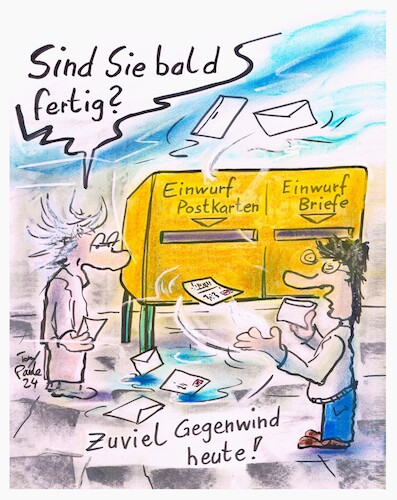 Sind Sie bald
fertig?
Einwurf
Postkarten
Einwurf
Briefe
Zuviel Gegenwind
heute!
Tom
24